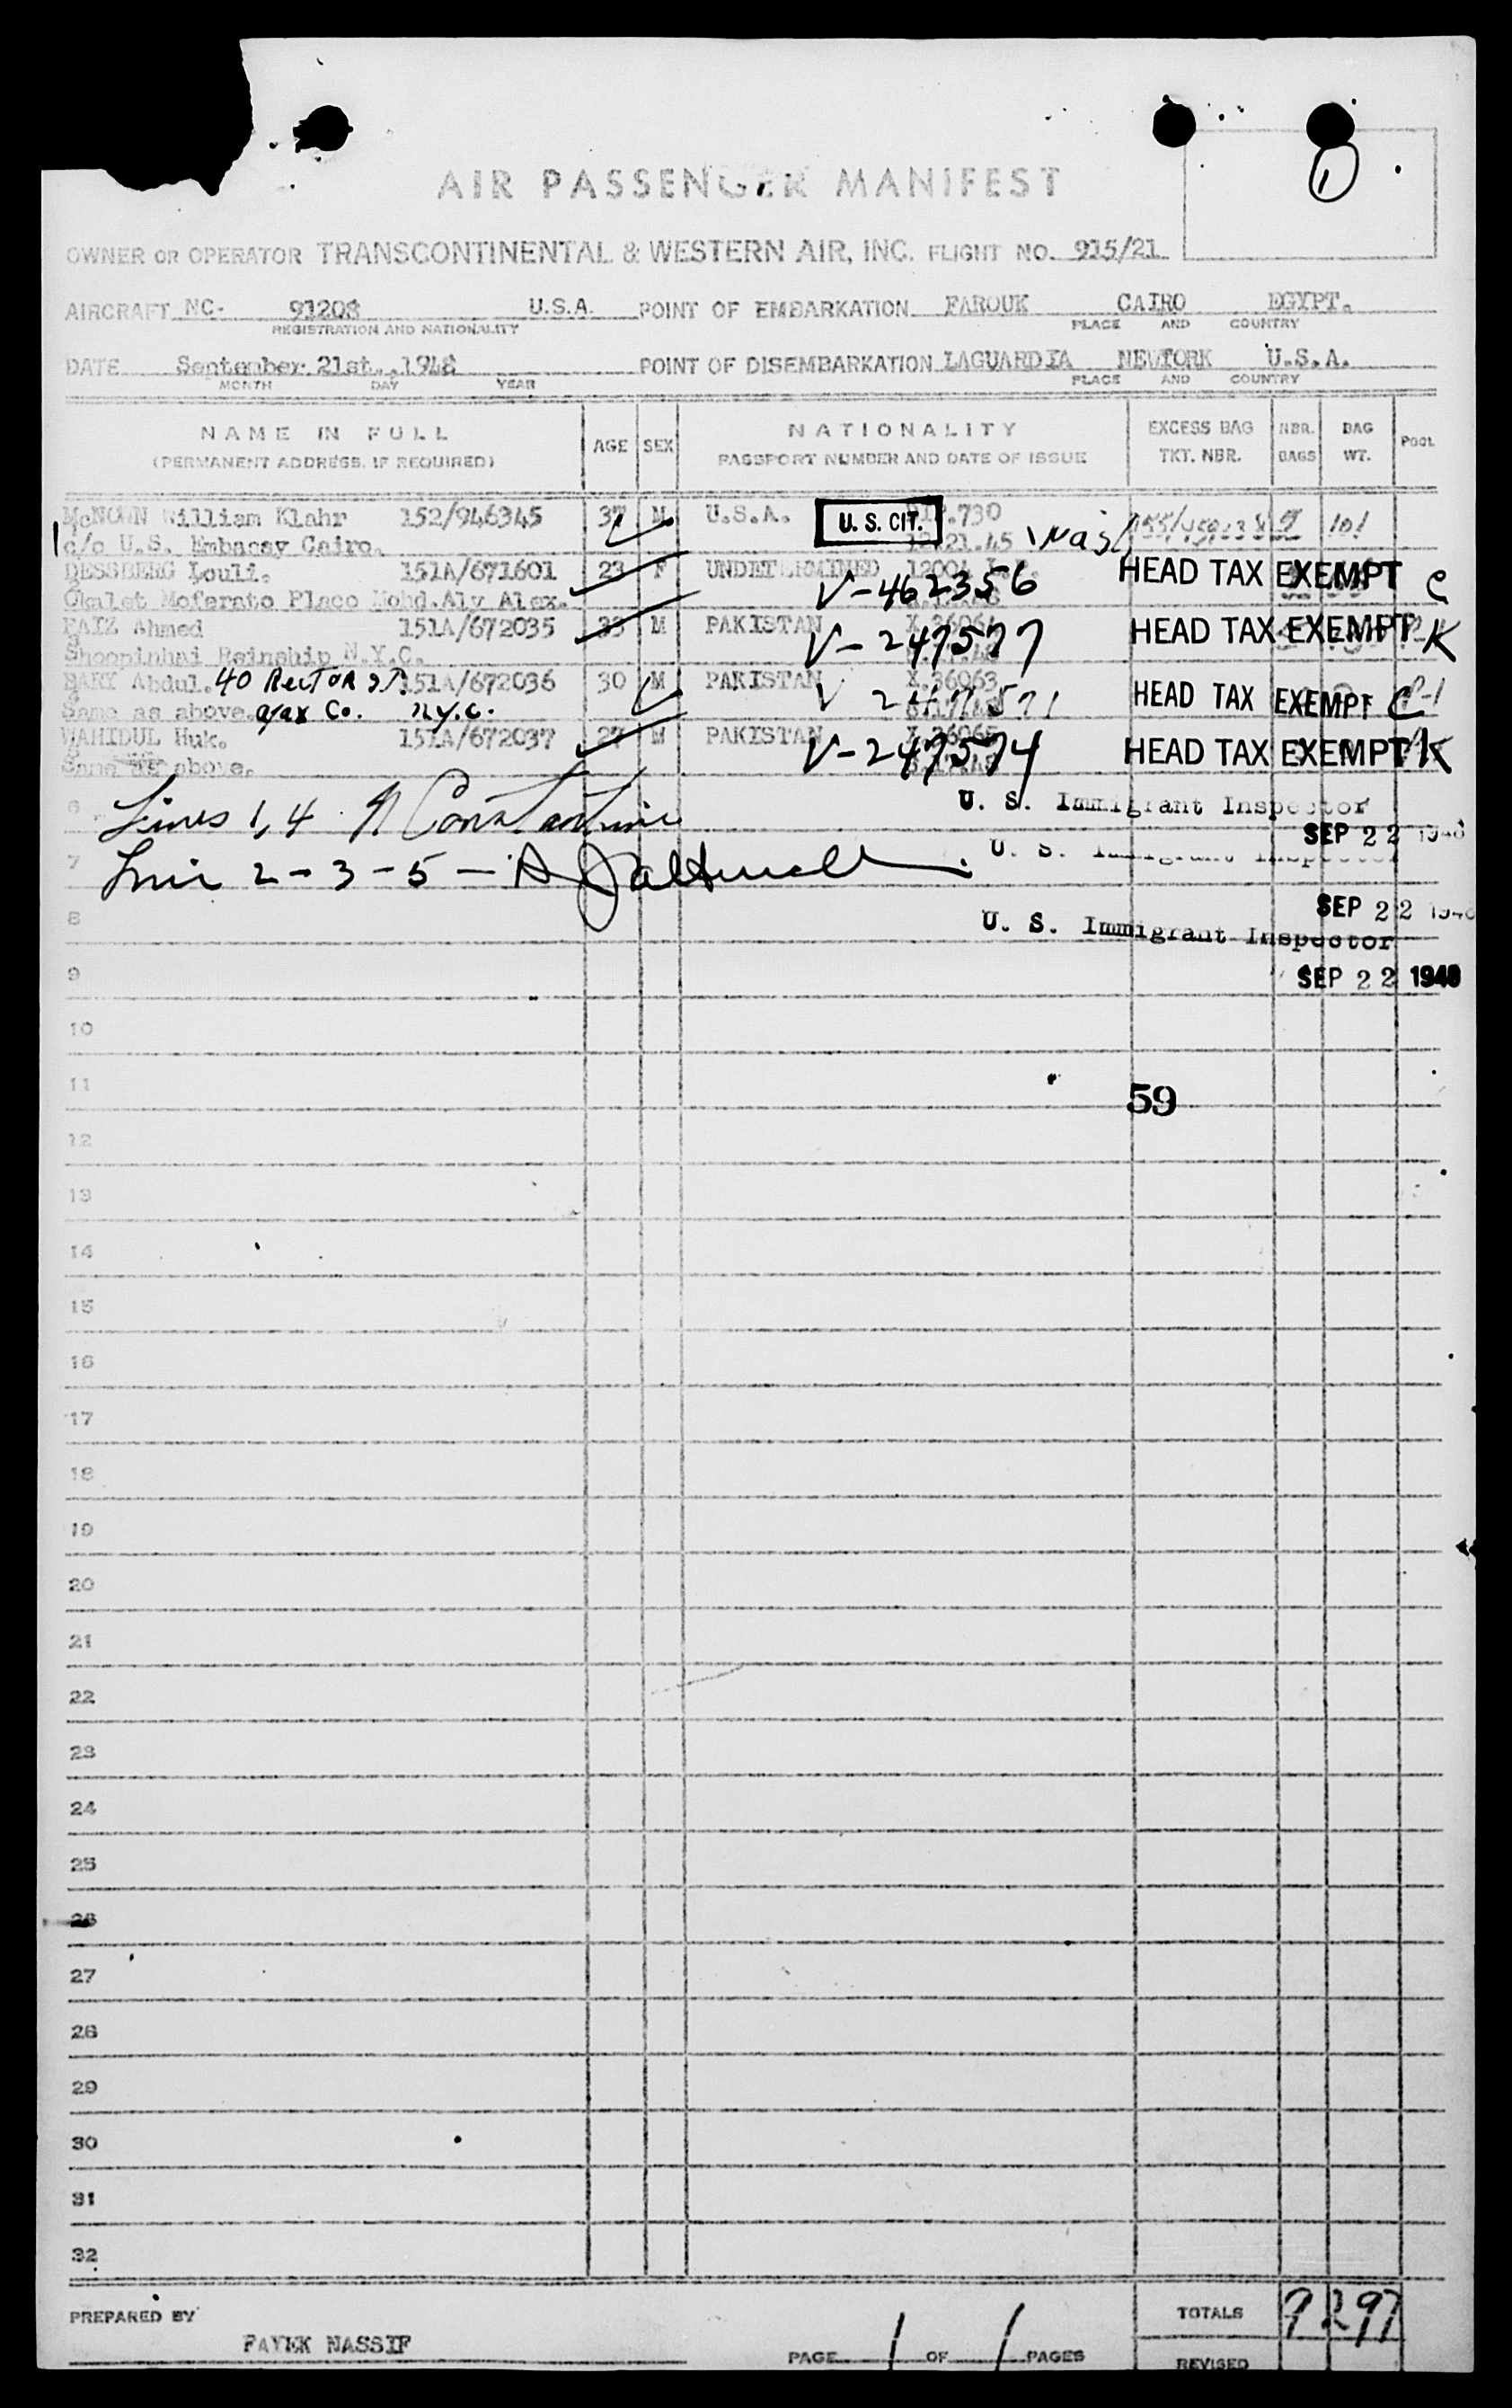 1
AIR PASSENGER MANIFEST
OWNER OR OPERATOR TRANSCONTINENTAL & WESTERN AIR, INC. FLIGHT NO. 915/21
AIRCRAFT NC- 91208 U.S.A. POINT OF EMBARKATION FAROUK CAIRO EGYPT.
REGISTRATION AND NATIONALITY PLACE AND COUNTRY
DATE September 21st.,1948 POINT OF DISEMBARKATION LAGUARDIA NEWYORK U.S.A.
MONTH DAY YEAR PLACE AND COUNTRY
NAME IN FULL AGE SEX NATIONALITY EXCESS BAG NBR. BAG POOL
(PERMANENT ADDRESS, IF REQUIRED) PASSPORT NUMBER AND DATE OF ISSUE TKT. NBR. BAGS WT.
McNOWN William Klahr 152/946345 37 M U.S.A. U. S. CIT. .730 101
c/o U.S. Embassy Cairo. .21.45 Wash
DESSBERG Louli. 151A/671601 23 F UNDETERMINED 12004 V-462356 HEAD TAX EXEMPT C
Chalet Moferato Place Mohd.Aly Alex.
FAIZ Ahmed 151A/672035 33 M PAKISTAN X.36064 V-247577 HEAD TAX EXEMPT K
Shoopinhai Reinship N.Y.C.
BARY Abdul. 40 Rector St. 151A/672036 30 M PAKISTAN X.36063 V 247571 HEAD TAX EXEMPT C
Same as above. Ajax Co. N.Y.C.
WAHIDUL Huk. 151A/672037 27 M PAKISTAN X.36065 V-247574 HEAD TAX EXEMPT K
Same as above.
6 Lines 1, 4 N Constantine U. S. Immigrant Inspector
SEP 22 1948
7 Line 2-3-5- U. S. Immigrant Inspector
8 SEP 22 1948
U. S. Immigrant Inspector
9 SEP 22 1948
10
11 59
12
13
14
15
16
17
18
19
20
21
22
23
24
25
26
27
28
29
30
31
32
PREPARED BY FAYEK NASSIF TOTALS 9 297
PAGE 1 OF 1 PAGES REVISED